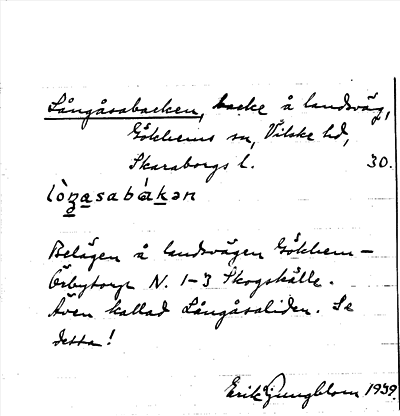 Långåsabacken, backe å landsväg,
Gökhems sn, Vilske hd,
Skaraborgs l. 30.
lò̱ŋa̱sabákən
Belägen å landsvägen Gökhem –
Örbytorp N. 1–3 Skogskälle.
Även kallad Långåsaliden. Se
detta!
Erik Ljungblom 1939.